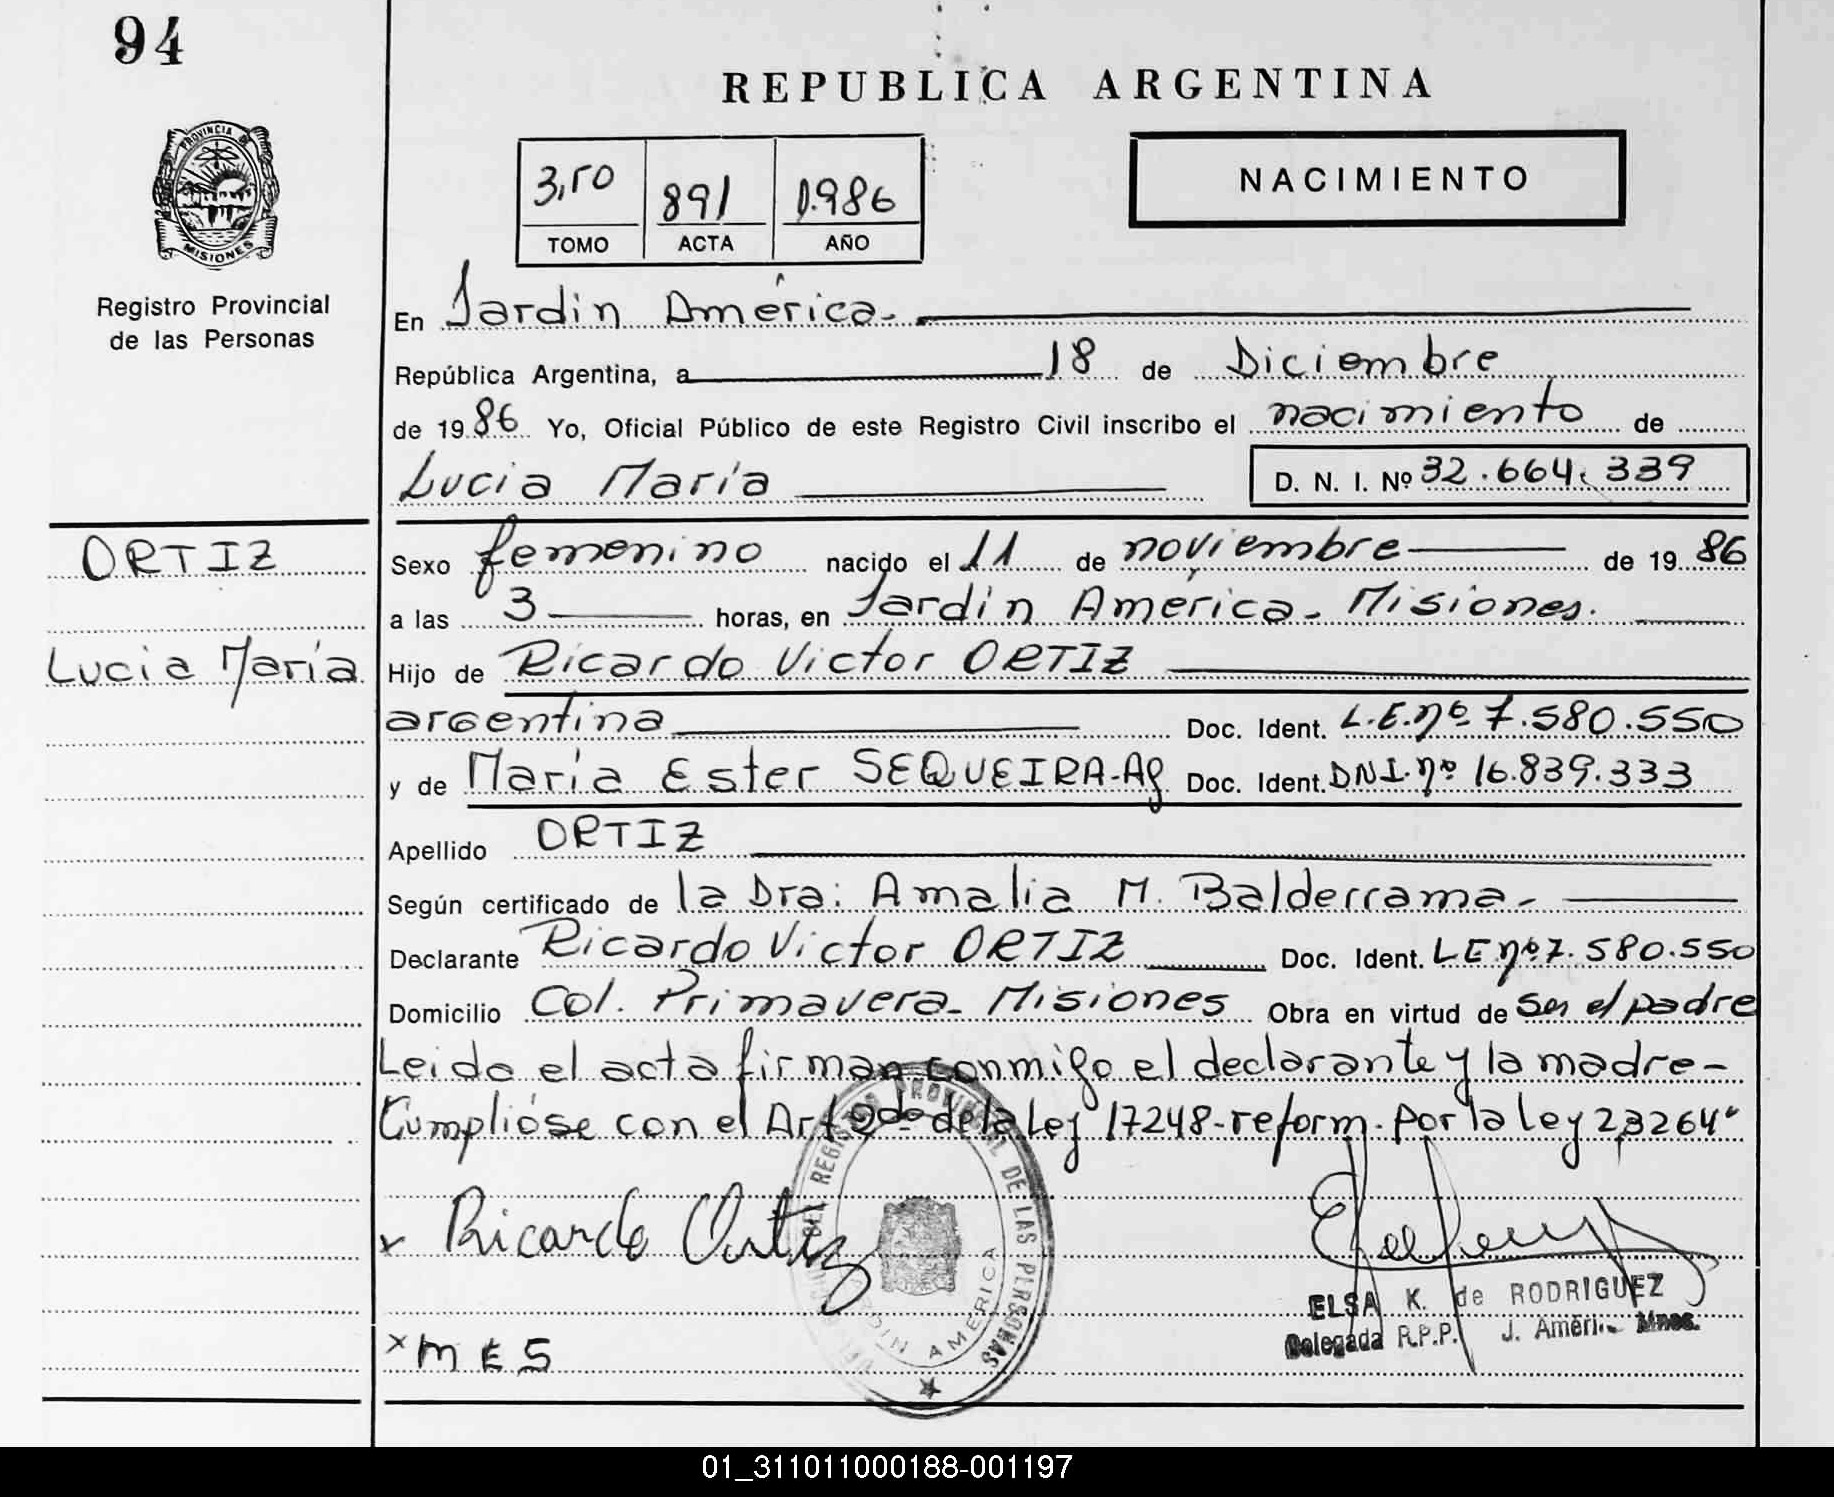 94
REPUBLICA ARGENTINA
PROVINCIA DE
MISIONES
Registro Provincial
de las Personas
3,50 891 1.986
TOMO ACTA AÑO
NACIMIENTO
En Jardin América.
República Argentina, a 18 de Diciembre
de 1986 Yo, Oficial Público de este Registro Civil inscribo el nacimiento de
Lucia María D. N. I. Nº 32.664.339
ORTIZ
Sexo femenino nacido el 11 de noviembre de 1986
a las 3 horas, en Jardín América. Misiones.
Lucia María
Hijo de Ricardo Victor ORTIZ
argentina Doc. Ident. L.E.nº 7.580.550
y de María Ester SEQUEIRA-Ag Doc. Ident. DNI.nº 16.839.333
Apellido ORTIZ
Según certificado de la Dra: Amalia M. Balderrama.
Declarante Ricardo Victor ORTIZ Doc. Ident. LE nº 7.580.550
Domicilio Col. Primavera. Misiones Obra en virtud de ser el padre
Leida el acta firman conmigo el declarante y la madre-
Cumplióse con el Art 2do de la Ley 17248-reform. por la ley 23264"
DEL REGISTRO PROVINCIAL DE LAS PERSONAS
JARDIN AMERICA
x Ricardo Ortiz
ELSA K. de RODRIGUEZ
Delegada R.P.P. J. Améri. Mnes.
x M E S
01_311011000188-001197